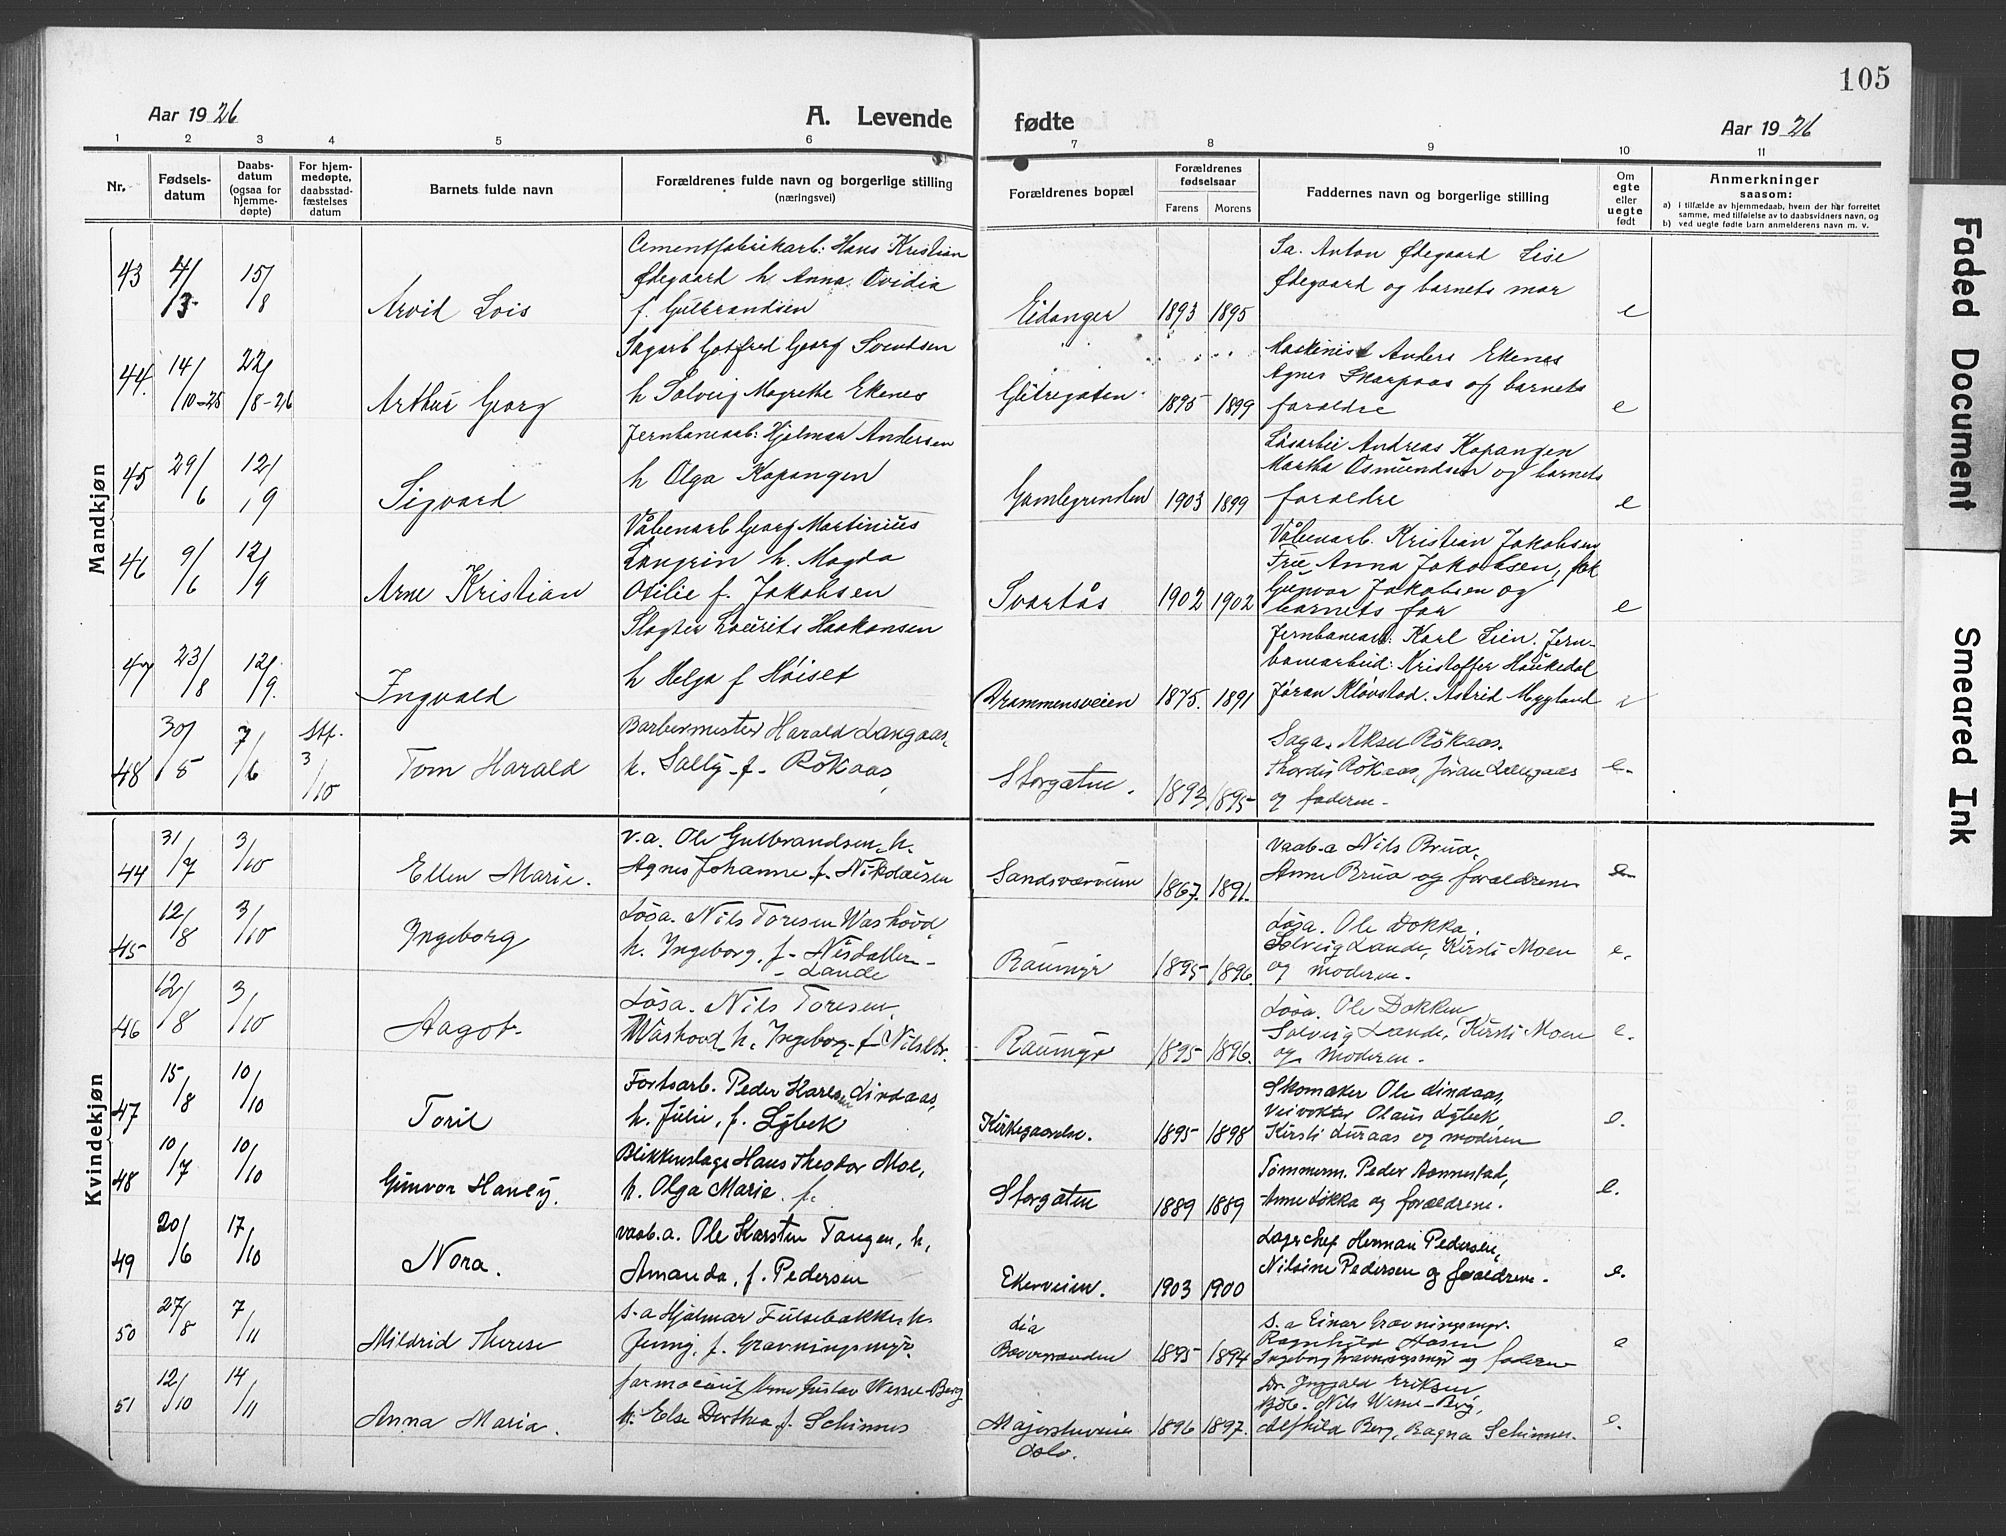 105
Aar 1926
A. Levende fødte
Aar 1926
1 2 3 4 5 6 7 8 9 10 11
Nr.
Fødsels-
datum
Daabs-
datum
(ogsaa for
hjemme-
døpte)
For hjem-
medøpte,
daabsstad-
fæstelses
datum
Barnets fulde navn
Forældrenes fulde navn og borgerlige stilling
(næringsvei)
Forældrenes bopæl
Forældrenes
fødselsaar
Farens Morens
Faddernes navn og borgerlige stilling
Om
egte
eller
uegte
født
Anmerkninger
saasom:
a) i tilfælde av hjemmedaab, hvem der har forrettet
samme, med tilføielse av to daabsvidners navn, og
b) ved uegte fødte barn anmelderens navn m. v.
Mandkjøn
43 4/3 15/8 Arvid Lois
Cementfabrikarb: Hans Kristian
Ødegaard h Anna Ovidia
f. Gulbrandsen
Eidanger 1893 1895
Sa. Anton Ødegaard Lise
Ødegaard og barnets mor
e
44. 14/10-25 22/8-26 Arthur Georg
Sagarb Gotfred Georg Svendsen
h Solveig Magrethe Ekenes
Glitregaten 1895 1899
Maskinist Anders Ekenes
Agnes Skarpaas og barnets
foraldre
e
45 29/6 12/9 Sigvard
Jernbanearb: Hjalmar Andersen
h Olga Kopangen
Gamlegrenden 1903 1899
Løsarbei Andreas Kopangen
Martha Osmundsen og barnets
foraldre
e
46 9/6 12/9 Arne Kristian
Våbenarb Georg Martinius
Langrin h. Magda
Otilie f. Jakobsen
Svartås 1902 1902
Våbenarb. Kristian Jakobsen
Frue Anna Jakobsen, frk
Gunvor Jakobsen og
barnets far
e
47 23/8 12/9. Ingvald
Slagter Laurits Haakonsen
h Helga f Høiset
Drammensveien 1875. 1891
Jernbanearb: Karl Lien. Jern-
banearbeid: Kristoffer Haukedal
Jøran Kløvstad. Astrid Myyland
48 30/5 7/6 Stf. 3/10 Tom Harald
Barbermester Harald Langaas,
h. Sally f. Rökaas,
Storgaten. 1893 1895
Saga. Aksel Rökaas.
Thordis Rökaas, Jøran Langaas
og faderen.
e.
Kvindekjøn
44 31/7 3/10 Ellen Marie.
v.a. Ole Gulbrandsen, h.
Agnes Johanne f. Nikolaisen
Sandsværveien 1867. 1891.
vaab.a Nils Brua,
Anne Brua og forældrene
e
45 12/8 3/10 Ingeborg
Løsa. Nils Toresen Washovd
h. Ingeborg, f.
Lande
Raumyr 1895 1896.
Løsa. Ole Dokka.
Solveig Lande, Kirsti Moen
og moderen.
e.
46 12/8 3/10 Aagot.
Løsa. Nils Toresen,
Washovd h. Ingeborg f
Raumyr 1895 1896.
Løsa. Ole Dokken
Solveig Lande, Kirsti Moen
og moderen.
e.
47 15/8 10/10 Toril
Fortsarb. Peder Karlsen Lindaas,
h. Julie, f. Lybek
Kirkegaardse. 1895 1898
Skomaker Ole Lindaas,
Veivokter Olaus Lybek
Kirsti Luraas og moderen
e.
48 10/7 10/10 Gunvor Hansy.
Blikkenslage Hans Theodor Moe,
h. Olga Marie. f.
Storgaten 1889 1889
Tømmerm. Peder Aannestad,
Anne Løkka og forældrene.
e.
49 20/6 17/10 Nora.
vaab.a. Ole Karsten Tangen, h,
Amanda, f. Pedersen
Ekerveien. 1903 1900
Lagerchef Herman Pedersen,
Nilsine Pedersen og forældrene.
e.
50 27/8 7/11 Mildrid Therese
s.a Hjalmar Fulsebakke h.
Jenny, f. Gravningsmyr.
1895 1894
s.a Einar Gravningsmyr.
Ragnhild Hasen
Ingeborg Gravningsmyr og faderen
e
51 12/10 14/11 Anna Maria.
farmaceut Arne Gustav Wessel-Berg
h. Else Dorthea f. Schinnes
Majorstuveien
Oslo. 1896 1897.
Dr. Ingjald Eriksen
Nils Wessel-Berg,
Alfhild Berg, Ragna Schinnes.
e.
Faded Document
Smeared Ink